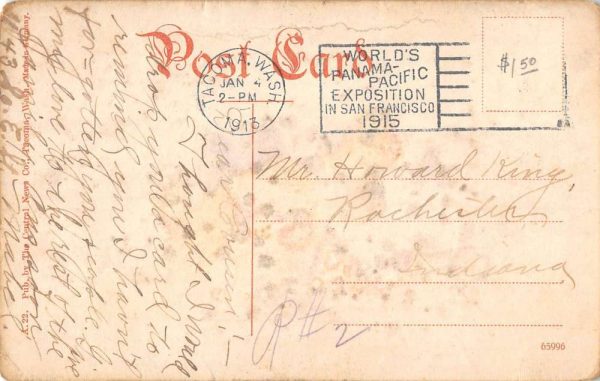 Post Card
TACOMA, WASH.
JAN 4
2-PM
1913
WORLD'S
PANAMA-
PACIFIC
EXPOSITION
IN SAN FRANCISCO
1915
$1.50
Mr. Howard King,
Rochester
Indiana
R#2
65996
Dear Cousin:—
Thought I would
drop you a card to
remind you I haven't
forgotten you people. Give
my love to the rest of the
A.22. Pub. by The Central News Co., Tacoma, Wash. Made in Germany.